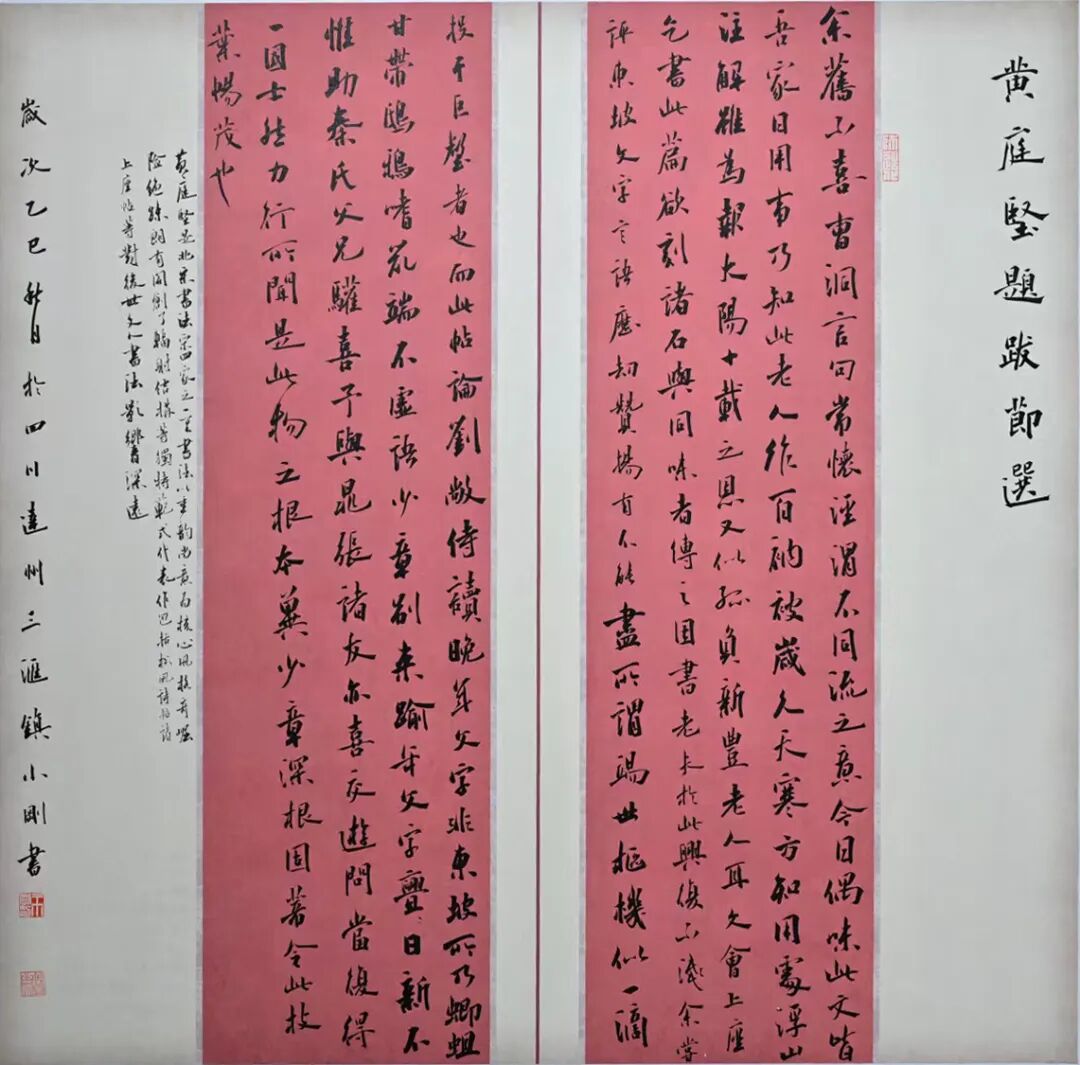 黄庭堅題跋節選
余舊不喜曹洞言句常懷涇渭不同流之意今日偶味此文皆
吾家日用事乃知此老人作百衲被歲久天寒方知用處浮山
注解雖為報大陽十載之恩又似孤負新豐老人耳文會上座
乞書此篇欲刻諸石與同味者傳之因書老夫於此興復不淺余嘗
評東坡文字言語歷劫贊揚有不能盡所謂竭世樞機似一滴
投于巨壑者也而此帖論劉敞侍讀晚年文字非東坡所乃蝍蛆
甘帶鴟鴉嗜鼠端不虛語少章別來踰年文字亹亹日新不
惟助秦氏父兄驩喜予與晁張諸友亦喜交遊間當復得
一國士然力行所聞是此物之根本冀少章深根固蒂令此枝
葉暢茂也
黃庭堅是北宋書法宋四家之一其書法以重韵尚意為核心風格奇崛
險絶疎朗有開創了輻射结構等獨特範式代表作包括松風閣詩帖諸
上座帖等對後世文人書法影響深遠
歲次乙巳秋月於四川達州三滙鎮小剛書